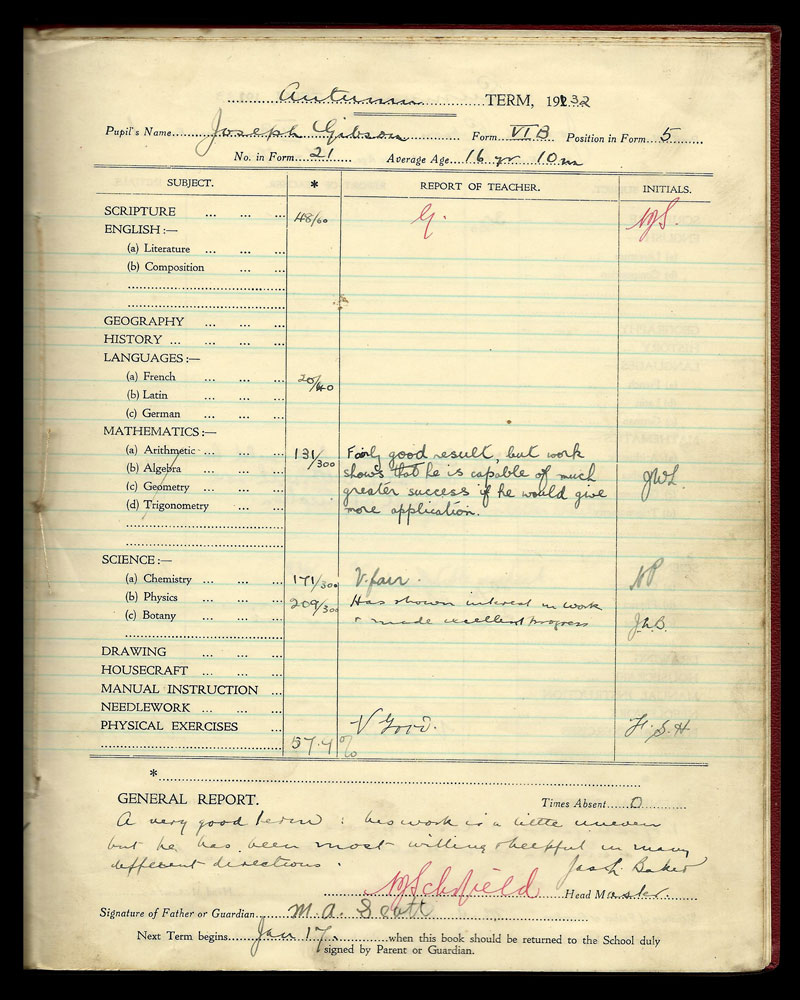 Autumn TERM, 1932
Pupil's Name Joseph Gibson Form VI B Position in Form 5
No. in Form 21 Average Age 16 yr 10 m
SUBJECT. * REPORT OF TEACHER. INITIALS.
SCRIPTURE 48/60 G.
ENGLISH :—
(a) Literature
(b) Composition
GEOGRAPHY
HISTORY
LANGUAGES :—
(a) French 20/40
(b) Latin
(c) German
MATHEMATICS :—
(a) Arithmetic 131/300 Fairly good result, but work
(b) Algebra shows that he is capable of much JWL.
(c) Geometry greater success if he would give
(d) Trigonometry more application.
SCIENCE :—
(a) Chemistry 171/300 V. fair. NP
(b) Physics 209/300 Has shown interest in work
(c) Botany & made excellent progress
DRAWING
HOUSECRAFT
MANUAL INSTRUCTION
NEEDLEWORK
PHYSICAL EXERCISES V Good. H.S.H
57.4%
*
GENERAL REPORT. Times Absent 0
A very good term : his work is a little uneven
but he has been most willing & helpful in many
different directions. Baker
Schofield Head Master.
Signature of Father or Guardian M. A. Scott
Next Term begins Jan 17. when this book should be returned to the School duly
signed by Parent or Guardian.